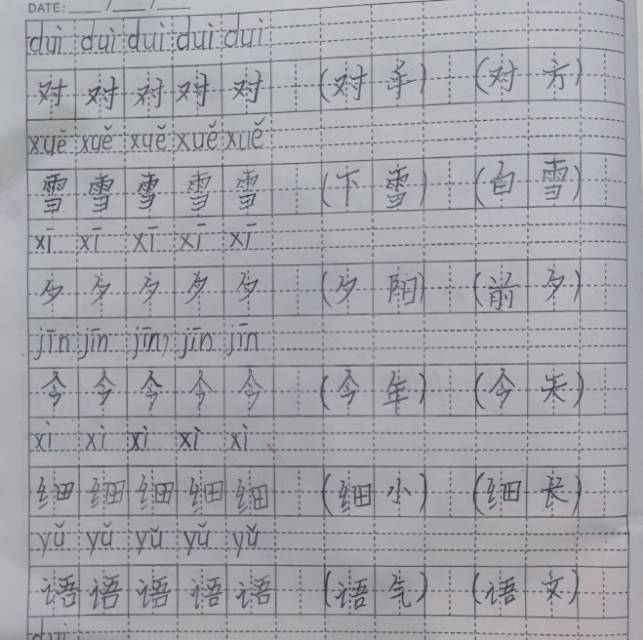 DATE: ____/____/____
duì duì duì duì duì
对 对 对 对 对 (对 手) (对 方)
xuě xuě xuě xuě xuě
雪 雪 雪 雪 雪 (下 雪) (白 雪)
xī xī xī xī xī
夕 夕 夕 夕 夕 (夕 阳) (前 夕)
jīn jīn jīn jīn jīn
今 今 今 今 今 (今 年) (今 天)
xì xì xì xì xì
细 细 细 细 细 (细 小) (细 长)
yǔ yǔ yǔ yǔ yǔ
语 语 语 语 语 (语 气) (语 文)